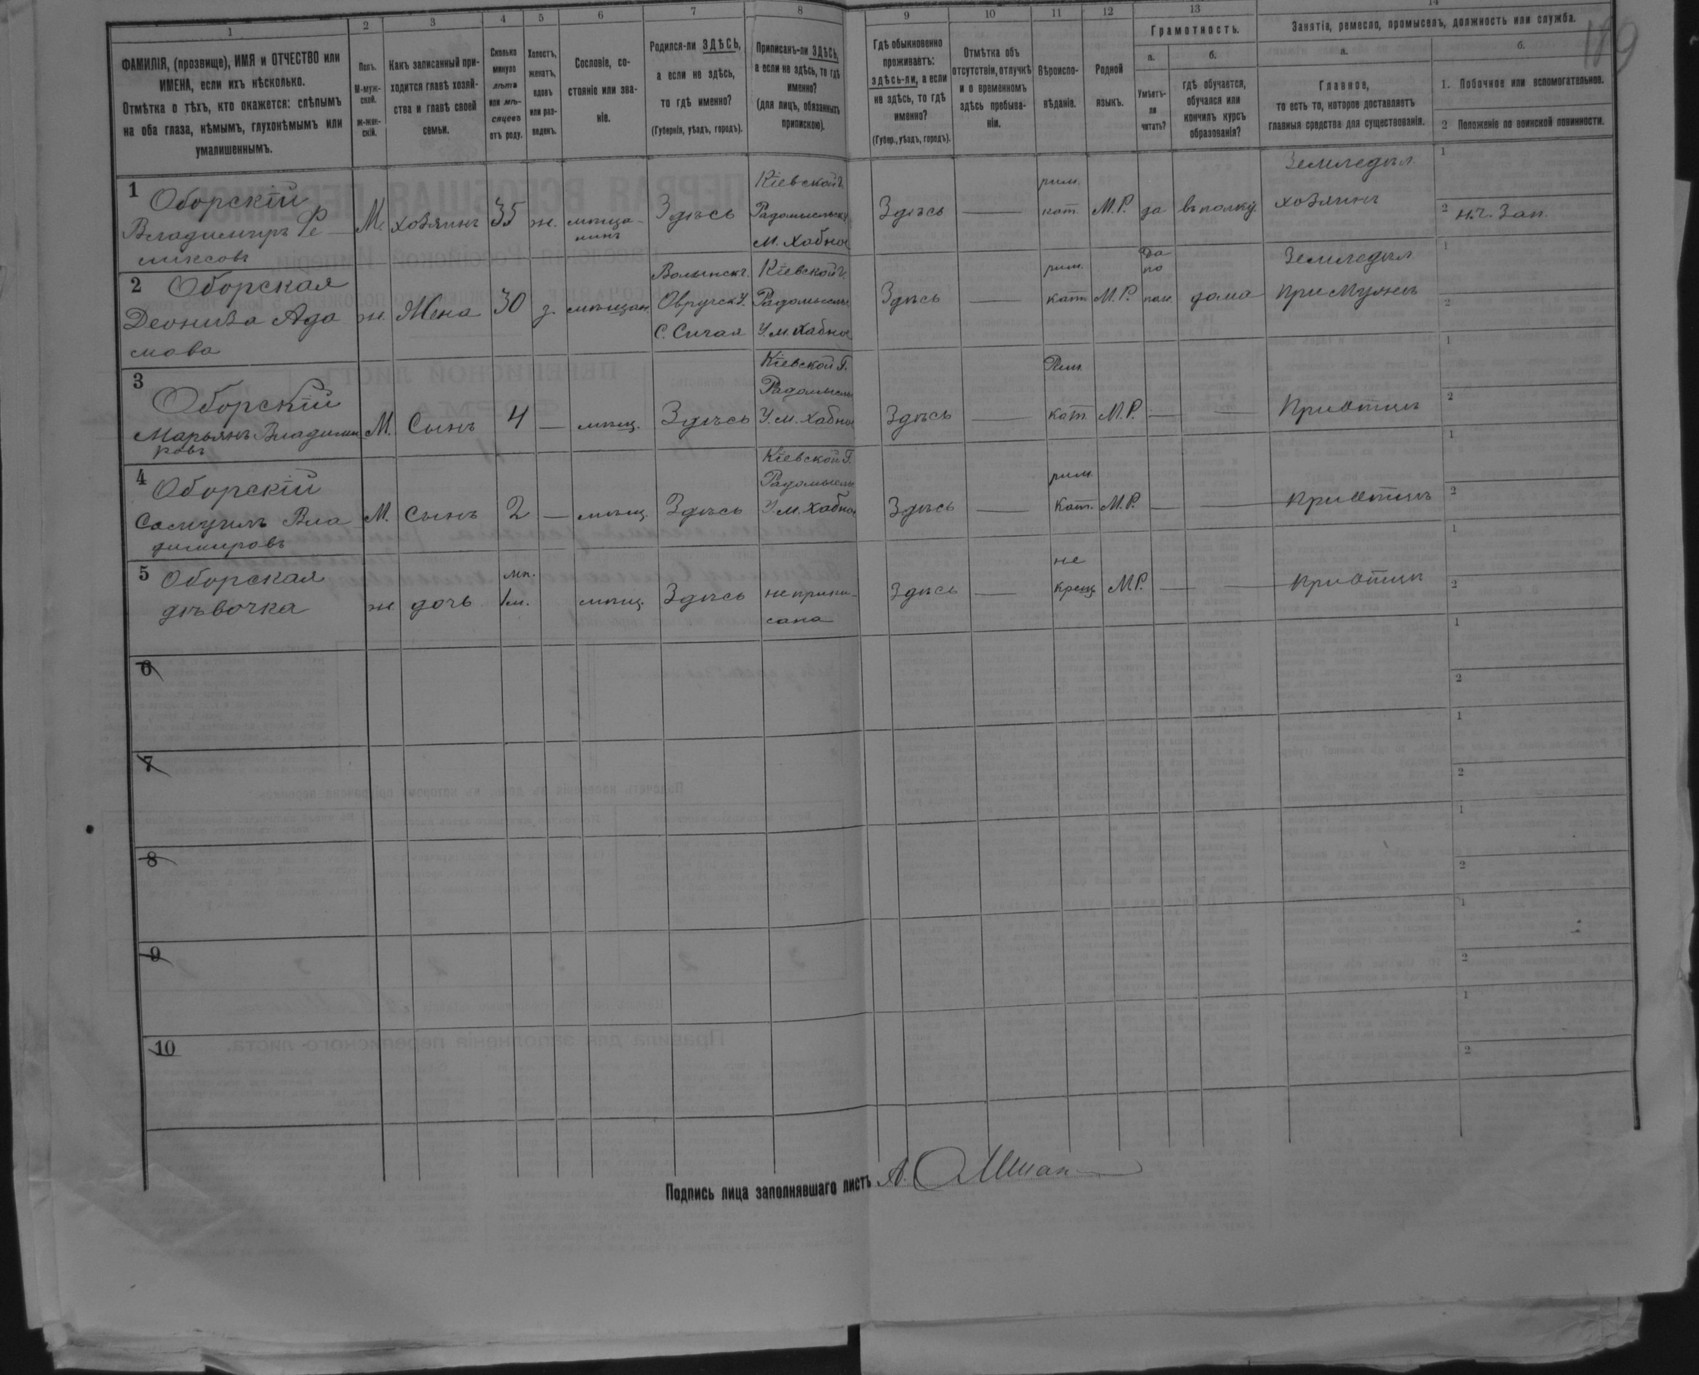 1 2 3 4 5 6 7 8 9 10 11 12 13 14
ФАМИЛІЯ, (прозвище), ИМЯ и ОТЧЕСТВО или
ИМЕНА, если ихъ нѣсколько.
Отмѣтка о тѣхъ, кто окажется: слѣпымъ
на оба глаза, нѣмымъ, глухонѣмымъ или
умалишеннымъ.
Полъ.
М-муж-
ской.
ж-жен-
скій.
Какъ записанный при-
ходится главѣ хозяй-
ства и главѣ своей
семьи.
Сколько
минуло
лѣтъ
или мѣ-
сяцевъ
отъ роду.
Холостъ,
женатъ,
вдовъ
или раз-
веденъ.
Сословіе, со-
стояніе или зва-
ніе.
Родился-ли ЗДѢСЬ,
а если не здѣсь,
то гдѣ именно?
(Губернія, уѣздъ, городъ).
Приписанъ-ли ЗДѢСЬ,
а если не здѣсь, то гдѣ
именно?
(для лицъ, обязанныхъ
припискою).
Гдѣ обыкновенно
проживаетъ:
здѣсь-ли, а если
не здѣсь, то гдѣ
именно?
(Губер., уѣздъ, городъ).
Отмѣтка объ
отсутствіи, отлучкѣ
и о временномъ
здѣсь пребыва-
ніи.
Вѣроиспо-
вѣданіе.
Родной
языкъ.
Грамотность.
а.
Умѣетъ-
ли
читать?
б.
гдѣ обучается,
обучался или
кончилъ курсъ
образованія?
Занятія, ремесло, промыселъ, должность или служба.
а.
Главное,
то есть то, которое доставляетъ
главныя средства для существованія.
б.
1. Побочное или вспомогательное.
2 Положеніе по воинской повинности.
1 Оборскій
Владимиръ Фе
ликсовъ
М. хозяинъ 35 ж. мѣща-
нинъ
Здѣсь
Кіевской г.
Радомысльск
м. Хабное
Здѣсь —
рим.
кат. М.Р. да въ полку
Земледѣл
хозяинъ
1
2 н.ч. Зап
2 Оборская
Адамова
ж. Жена 30 з. мѣщан
Волынск г.
Овручск у.
Кіевской г.
Радомысль
У. м. Хабное
Здѣсь —
рим.
кат. М.Р.
Да
по
пол дома
Земледѣл
При Мужѣ
1
2
3
Оборскій
Марьянъ Владими
ровъ
М. Сынъ 4 — мѣщ. Здѣсь
Кіевской г.
Радомысль
У. м. Хабное
Здѣсь —
Рим
кат. М.Р. — — При отцѣ
1
2
4 Оборскій
Самуилъ Вла
димировъ
М. Сынъ 2 — мѣщ. Здѣсь
Кіевской г.
Радомысль
У. м. Хабное
Здѣсь —
рим
Кат. М.Р. — — При отцѣ
1
2
5 Оборская
дѣвочка
ж дочь
мѣ.
1 м. мѣщ. Здѣсь
не припи-
сана
Здѣсь —
не
крещ М.Р. — — При отцѣ
1
2
6
1
2
7
1
2
8
1
2
9
1
2
10
1
2
Подпись лица заполнявшаго листъ